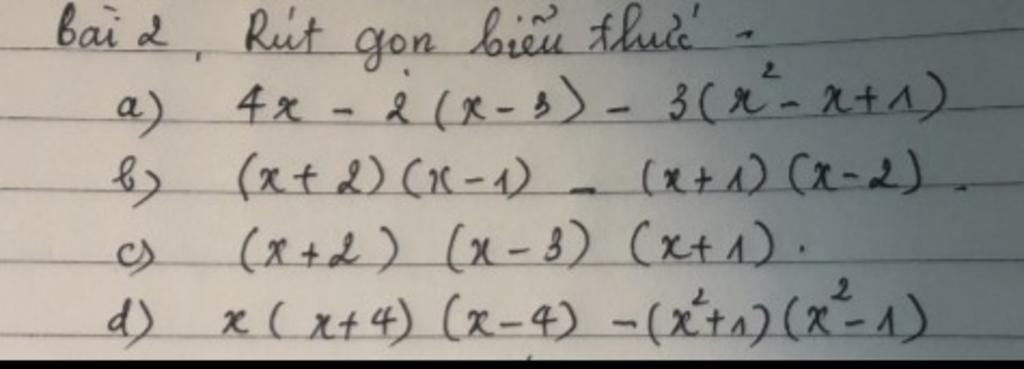 Bài 2, Rút gọn biểu thức.
a) 4x - 2(x-3) - 3(x² - x+1)
b) (x+2)(x-1) - (x+1)(x-2).
c) (x+2) (x-3) (x+1).
d) x(x+4) (x-4) -(x²+1)(x²-1)